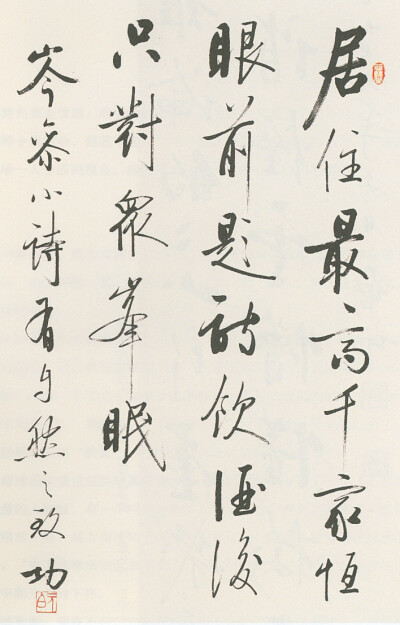 居住最高千家恒
眼前題詩飲酒後
只對眾峯眠
岑參小詩有自然之致 功